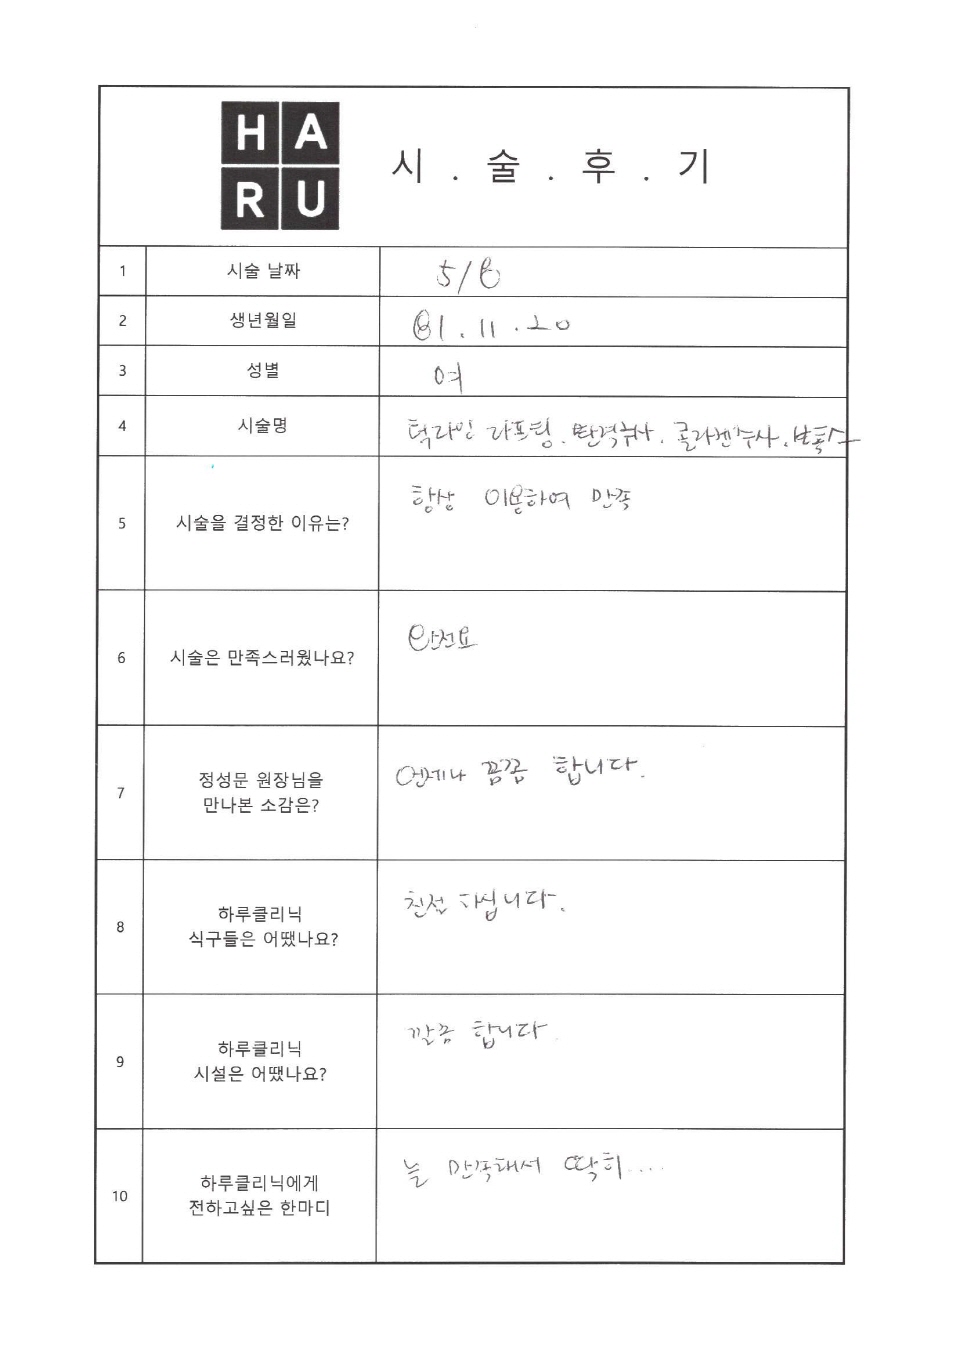 HA
RU
시.술.후.기
1 시술 날짜 5/8
2 생년월일 61.11.20
3 성별 여
4 시술명 턱라인 리프팅. 탄력주사. 콜라겐주사. 보톡스
5 시술을 결정한 이유는? 항상 이용하여 만족
6 시술은 만족스러웠나요?
7 정성문 원장님을
만나본 소감은? 언제나 꼼꼼 합니다.
8 하루클리닉
식구들은 어땠나요? 친절 하십니다.
9 하루클리닉
시설은 어땠나요? 깔끔 합니다.
10 하루클리닉에게
전하고싶은 한마디 늘 만족해서 딱히....